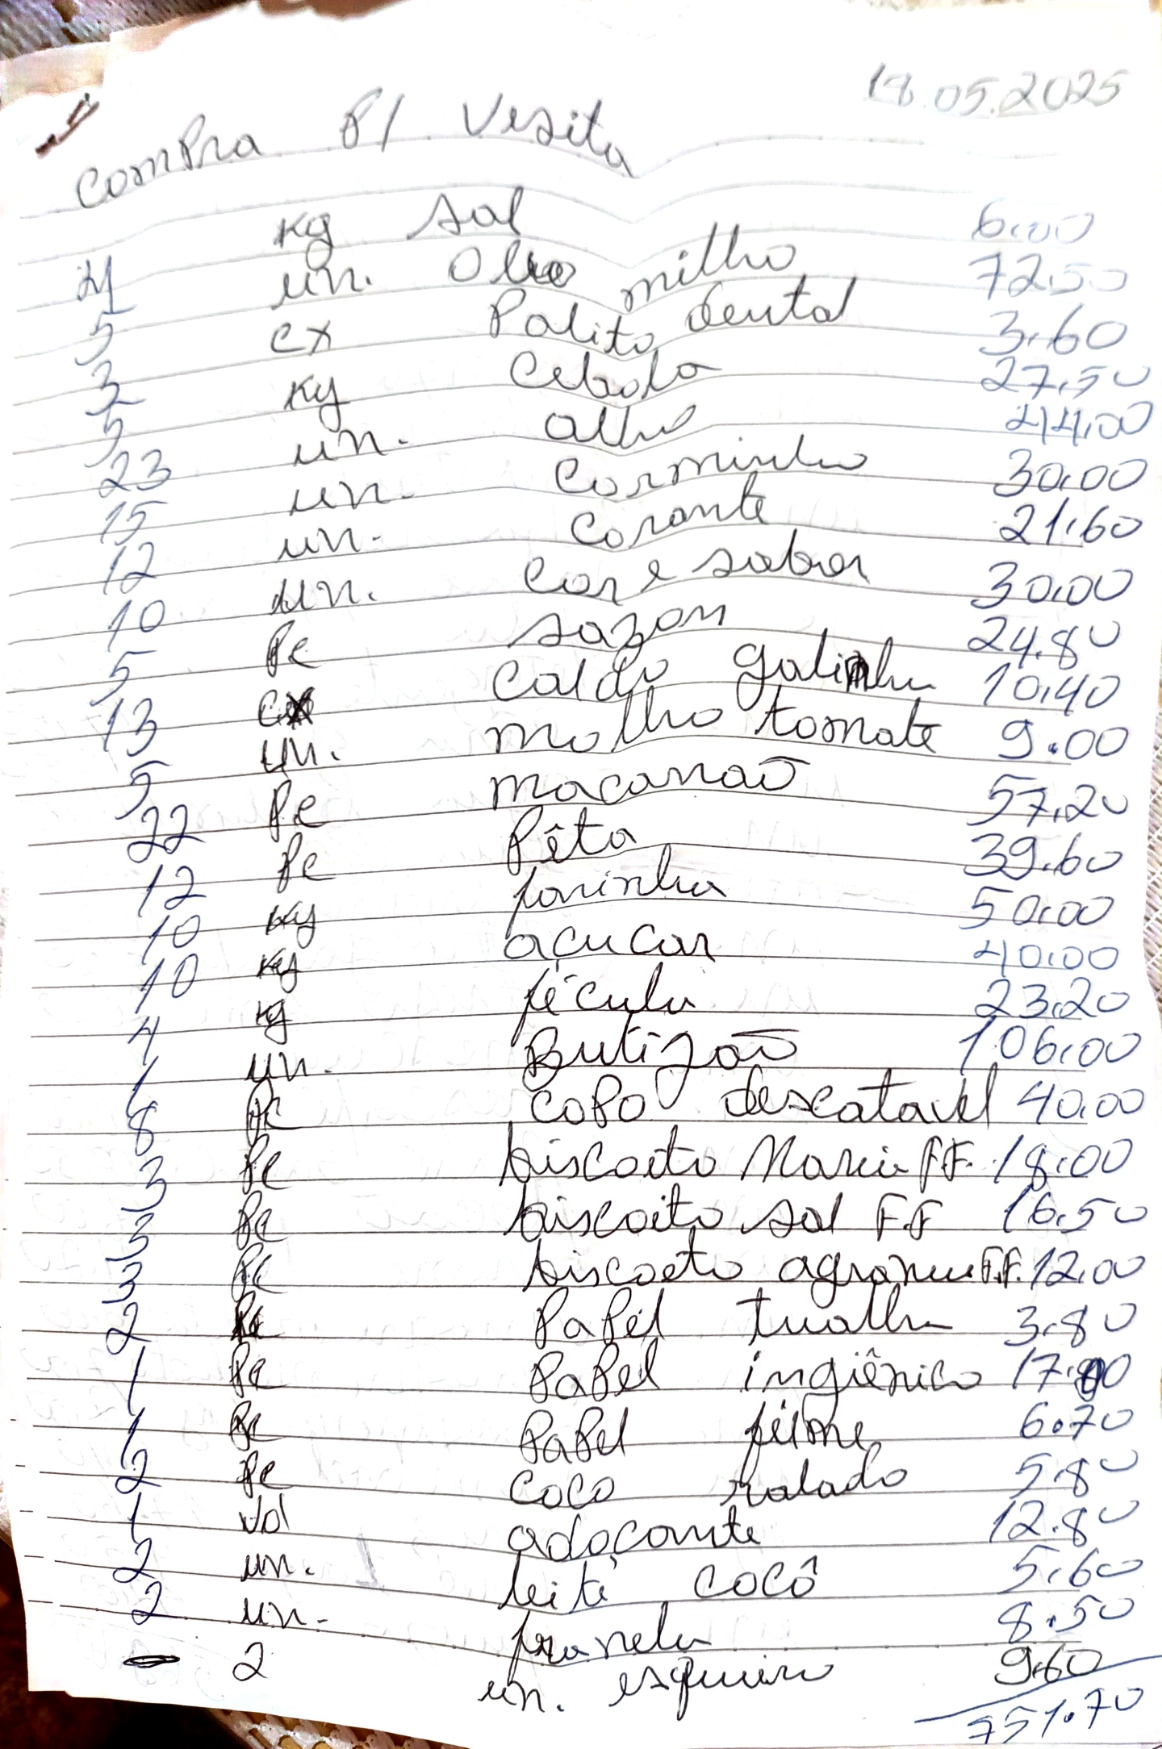 18.05.2025
Compra P/ Vesita
4 kg sal 6.00
5 un. Oleo milho 72.50
3 cx Palito dental 3.60
5 kg Cebola 27.50
23 un. alho 44.00
15 un. Corminho 30.00
12 un. Corante 21.60
10 un. Cor e sabor 30.00
5 Pc sazon 24.80
13 cx Caldo galinha 10.40
5 un. molho tomate 9.00
22 Pc macarraõ 57.20
12 Pc Pêta 39.60
10 kg farinha 50.00
10 kg açucar 40.00
4 kg fécula 23.20
1 un. Butijaõ 106.00
8 Pc copo descatavel 40.00
3 Pc biscoito Maria F.F. 18.00
3 Pc biscoito sal F.F 16.50
3 Pc biscoeto F.F. 12.00
2 Pc Papel tualha 3.80
1 Pc Papel ingiênico 17.80
1 Pc Papel filme 6.70
2 Pc coco ralado 5.80
1 vd adoçante 12.80
2 un. leite cocô 5.60
2 un. franela 8.50
2 un. esqueiro 9.60
751.70